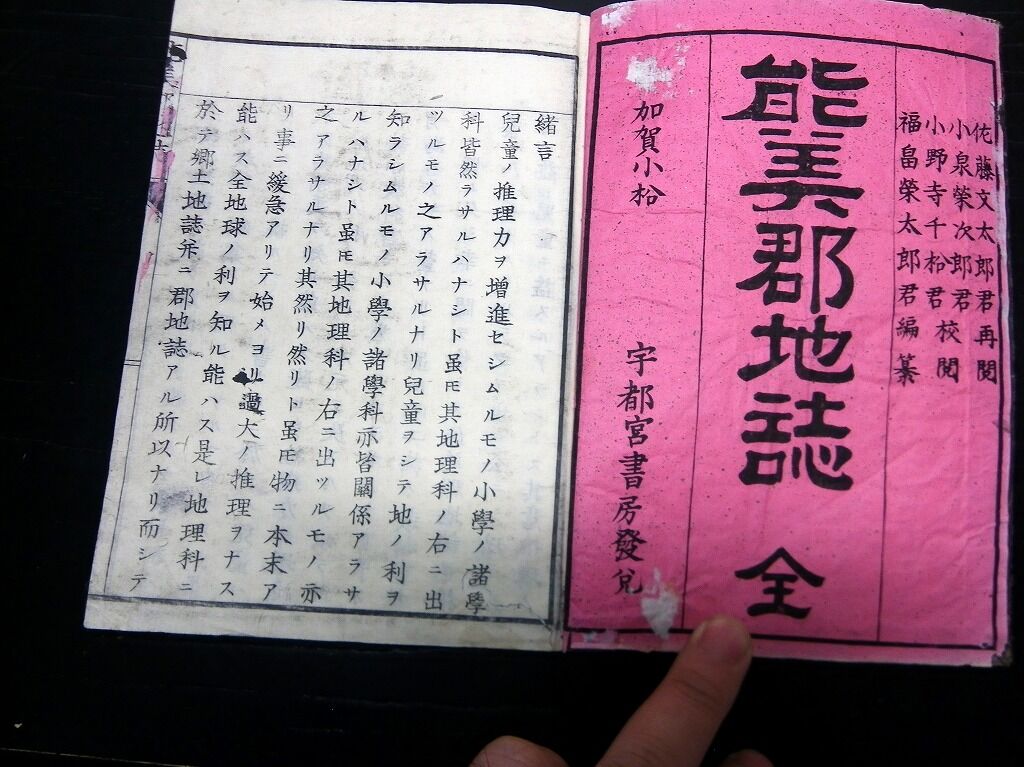 佐藤文太郎君再閲
小泉榮次郎君
小野寺千松君校閲
福畠榮太郎君編纂
能美郡地誌 全
加賀小松 宇都宮書房發兌
緒言
兒童ノ推理力ヲ增進セシムルモノ小學ノ諸學
科皆然ラサルハナシト虽𪜈其地理科ノ右ニ出
ツルモノ之アラサルナリ兒童ヲシテ地ノ利ヲ
知ラシムルモノ小學ノ諸學科亦皆關係アラサ
ルハナシト虽𪜈其地理科ノ右ニ出ツルモノ亦
之アラサルナリ其然リ然リト虽𪜈物ニ本末ア
リ事ニ緩急アリテ始メヨリ過大ノ推理ヲナス
能ハス全地球ノ利ヲ知ル能ハス是レ地理科ニ
於テ郷土地誌并ニ郡地誌アル所以ナリ而シテ